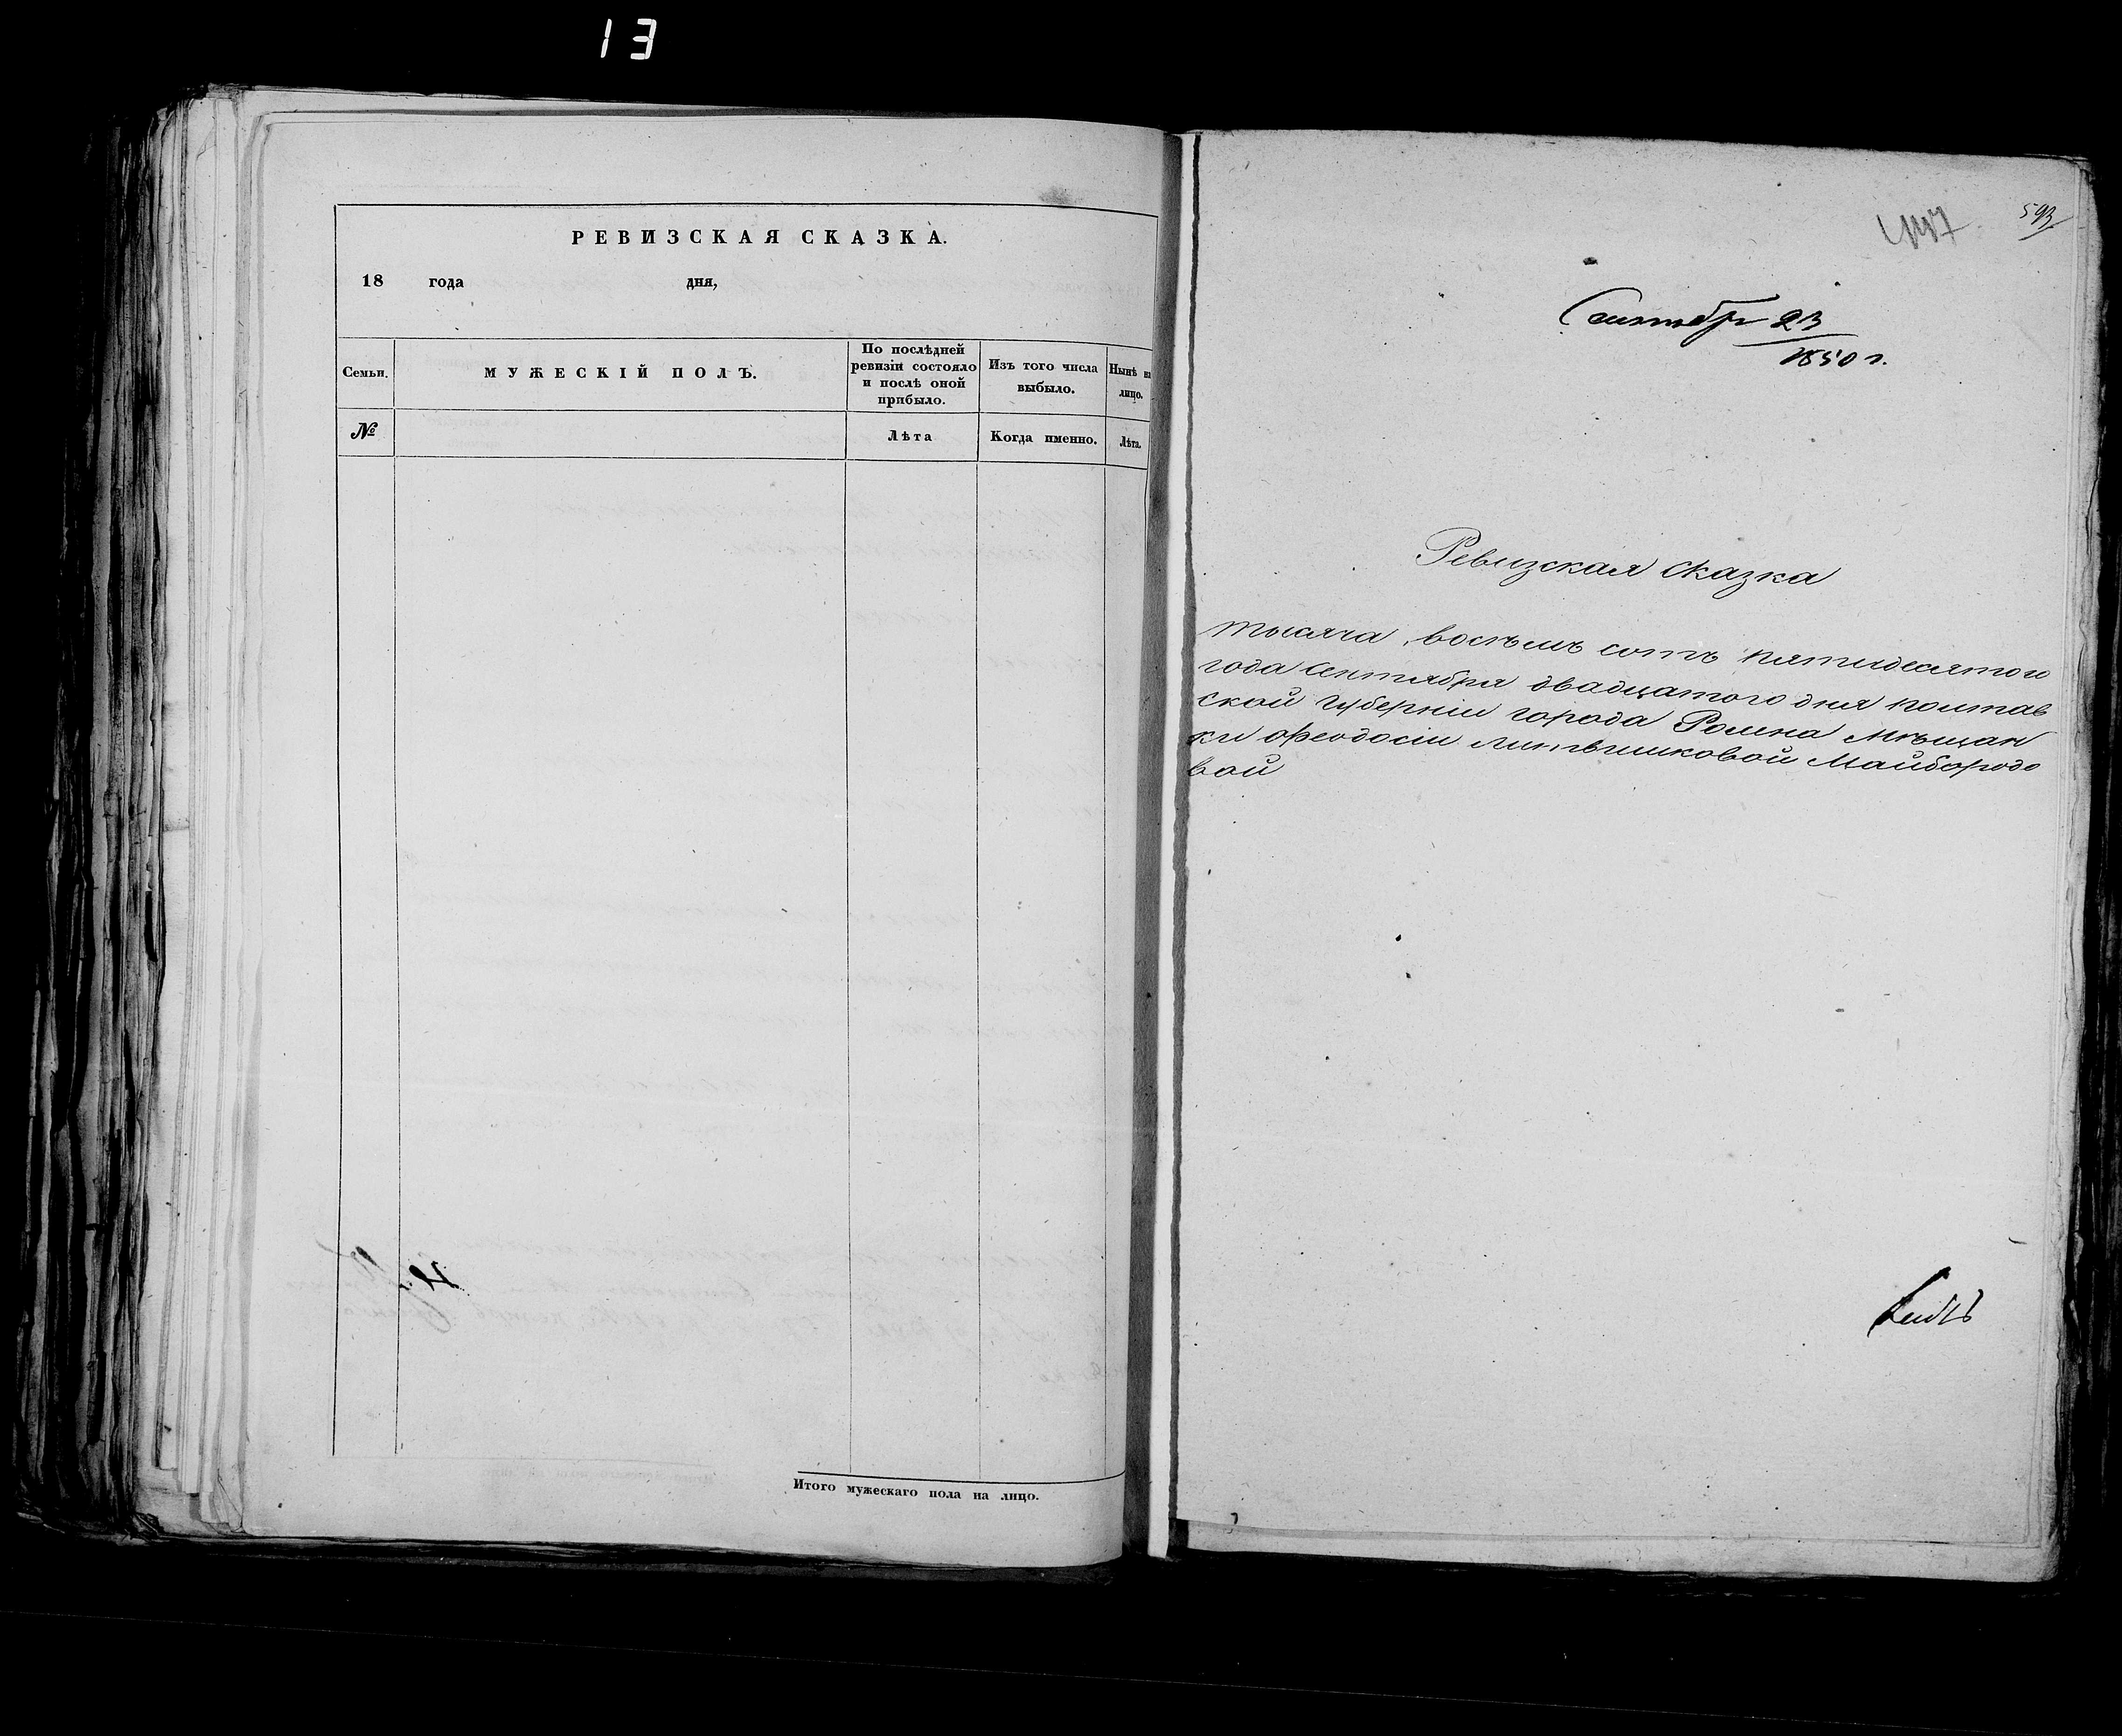 13
РЕВИЗСКАЯ СКАЗКА.
18 года дня,
Семьи.
МУЖЕСКІЙ ПОЛЪ.
По послѣдней
ревизіи состояло
и послѣ оной
прибыло.
Изъ того числа
выбыло.
Нынѣ на
лицо.
№
Лѣта
Когда именно.
Лѣта.
Итого мужескаго пола на лицо.
593
Сентября 23
1850 г.
Ревизская сказка
тысяча восѣмъ сотъ пятидесятого
года Сентября двадцатого дня полтав
ской губерніи города Ромна Мѣщан
ки Феодосіи Майбородо
вой